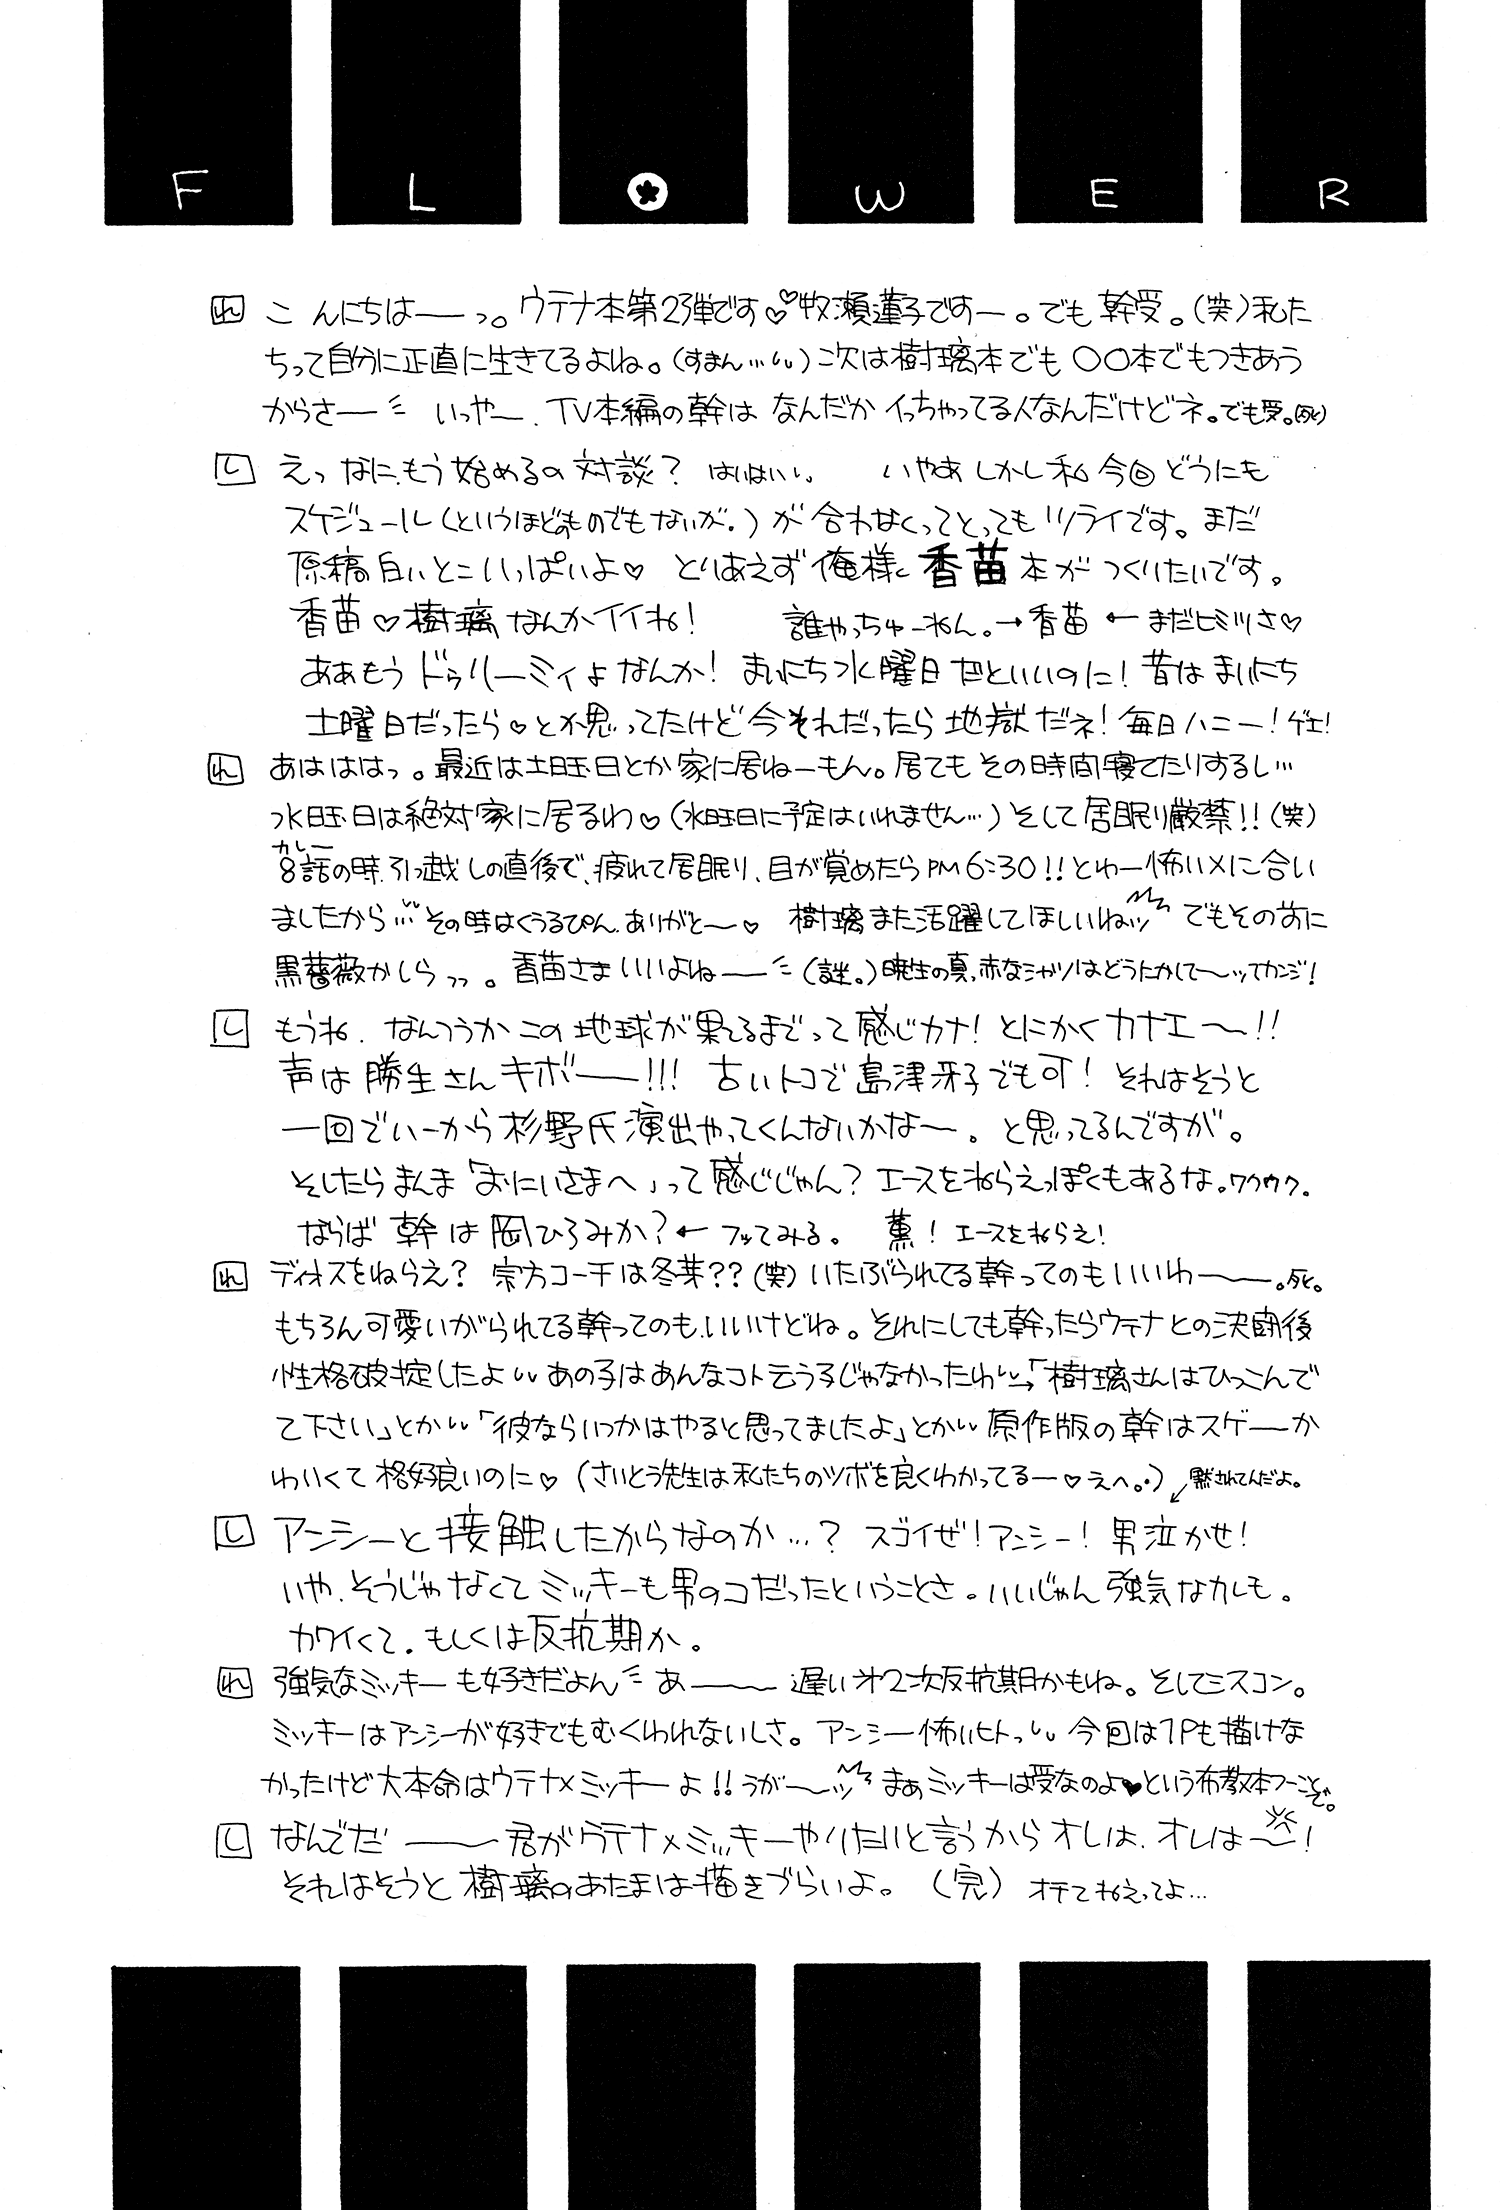 F L O W E R
れ こんにちは――っ。ウテナ本第2弾です♡♡牧瀬蓮子ですー。でも幹受。(笑)私た
ちって自分に正直に生きてるよね。(すまん…)次は樹璃本でも〇〇本でもつきあう
からさー いっやー、TV本編の幹はなんだかイっちゃってる人なんだけどネ。でも受。(死)
し えっなに、もう始めるの対談? はいはい。 いやあしかし私今回どうにも
スケジュール(というほどのものでもないが。)が合わなくってとってもツライです。まだ
原稿白いとこいっぱいよ♡ とりあえず俺様、香苗本がつくりたいです。
香苗♡樹璃なんかイイね! 誰やっちゅーねん。→香苗 ←まだヒミツさ♡
ああもうドゥリーミィよなんか! まいにち水曜日だといいのに! 昔はまいにち
土曜日だったら♡とか思ってたけど今それだったら地獄だネ! 毎日ハニー! ゲエ!
れ あはははっ。最近は土曜日とか家に居ねーもん。居てもその時間寝てたりするし…
水曜日は絶対家に居るわ♡(水曜日に予定はいれません…)そして居眠り厳禁!!(笑)
カレー
8話の時、引っ越しの直後で、疲れて居眠り、目が覚めたらPM6:30!!とわー怖いメに合い
ましたから その時はくうるぴん、ありがと〜♡ 樹璃また活躍してほしいねッ でもその前に
黒薔薇かしらっっ。香苗さまいいよねーー(謎。)暁生の真、赤なシャツはどうたかして〜ッてカンジ!
し もうね、なんつうかこの地球が果てるまでって感じカナ! とにかくカナエ〜!!
声は勝生さんキボー――!!! 古いトコで島津冴子でも可! それはそうと
一回でいーから杉野氏演出やってくんないかな〜。と思ってるんですが。
そしたらまんま「おにいさまへ」って感じじゃん? エースをねらえっぽくもあるな。ワクワク。
ならば幹は岡ひろみか?←フッてみる。 薫! エースをねらえ!
れ ディオスをねらえ? 宗方コーチは冬芽??(笑)いたぶられてる幹ってのもいいわ――。死。
もちろん可愛いがられてる幹ってのも、いいけどね。それにしても幹ったらウテナとの決闘後
性格破掟したよ あの子はあんなコト云う子じゃなかったわ→「樹璃さんはひっこんで
て下さい」とか「彼ならいつかはやると思ってましたよ」とか 原作版の幹はスゲーか
わいくて格好良いのに♡(さいとう先生は私たちのツボを良くわかってるー♡えへ。) ↙黙されてんだよ。
し アンシーと接触したからなのか…? スゴイぜ! アンシー! 男泣かせ!
いや、そうじゃなくてミッキーも男のコだったということさ。いいじゃん強気なカレも。
カワイくて。もしくは反抗期か。
れ 強気なミッキーも好きだよん あ――遅い才2次反抗期かもね。そしてミスコン。
ミッキーはアンシーが好きでもむくわれないしさ。アンシー怖いヒトっ 今回は1Pも描けな
かったけど大本命はウテナ×ミッキーよ!! うが〜ッ まぁミッキーは受なのよ♥という布教本つーことで。
し なんでだ――君がウテナ×ミッキーやりたいと言うからオレは、オレは〜!
それはそうと樹璃のあたまは描きづらいよ。 (完) オチてねえってよ…